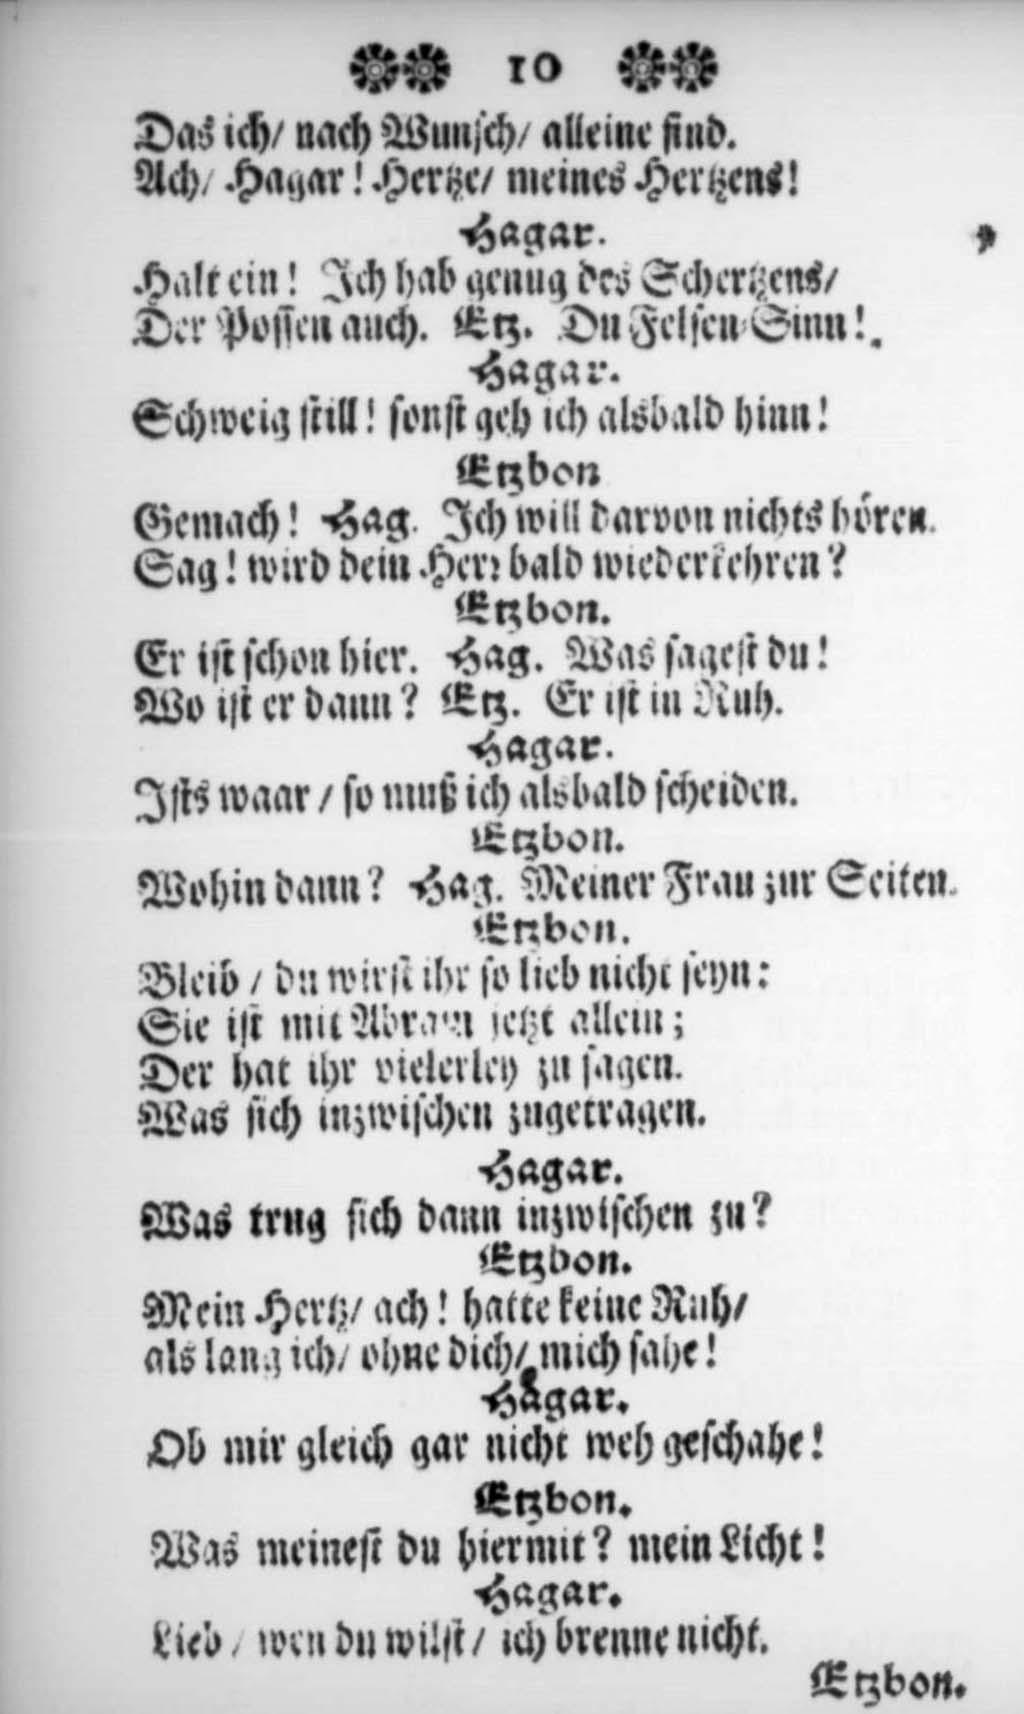 10
Das ich/ nach Wunsch/ alleine find.
Ach/ Hagar! Hertze/ meines Hertzens!
Hagar.
Halt ein! Ich hab genug des Schertzens/
Der Possen auch. Etz. Du Felsen-Sinn!
Hagar.
Schweig still! sonst geh ich alsbald hinn!
Etzbon
Gemach! Hag. Ich will darvon nichts hören.
Sag! wird dein Herr bald wiederkehren?
Etzbon.
Er ist schon hier. Hag. Was sagest du!
Wo ist er dann? Etz. Er ist in Ruh.
Hagar.
Ists waar / so muß ich alsbald scheiden.
Etzbon.
Wohin dann? Hag. Meiner Frau zur Seiten.
Etzbon.
Bleib / du wirst ihr so lieb nicht seyn:
Sie ist mit Abram jetzt allein;
Der hat ihr vielerley zu sagen.
Was sich inzwischen zugetragen.
Hagar.
Was trug sich dann inzwischen zu?
Etzbon.
Mein Hertz/ ach! hatte keine Ruh/
als lang ich/ ohne dich/ mich sahe!
Hagar.
Ob mir gleich gar nicht weh geschahe!
Etzbon.
Was meinest du hiermit? mein Licht!
Hagar.
Lieb / wen du wilst / ich brenne nicht.
Etzbon.